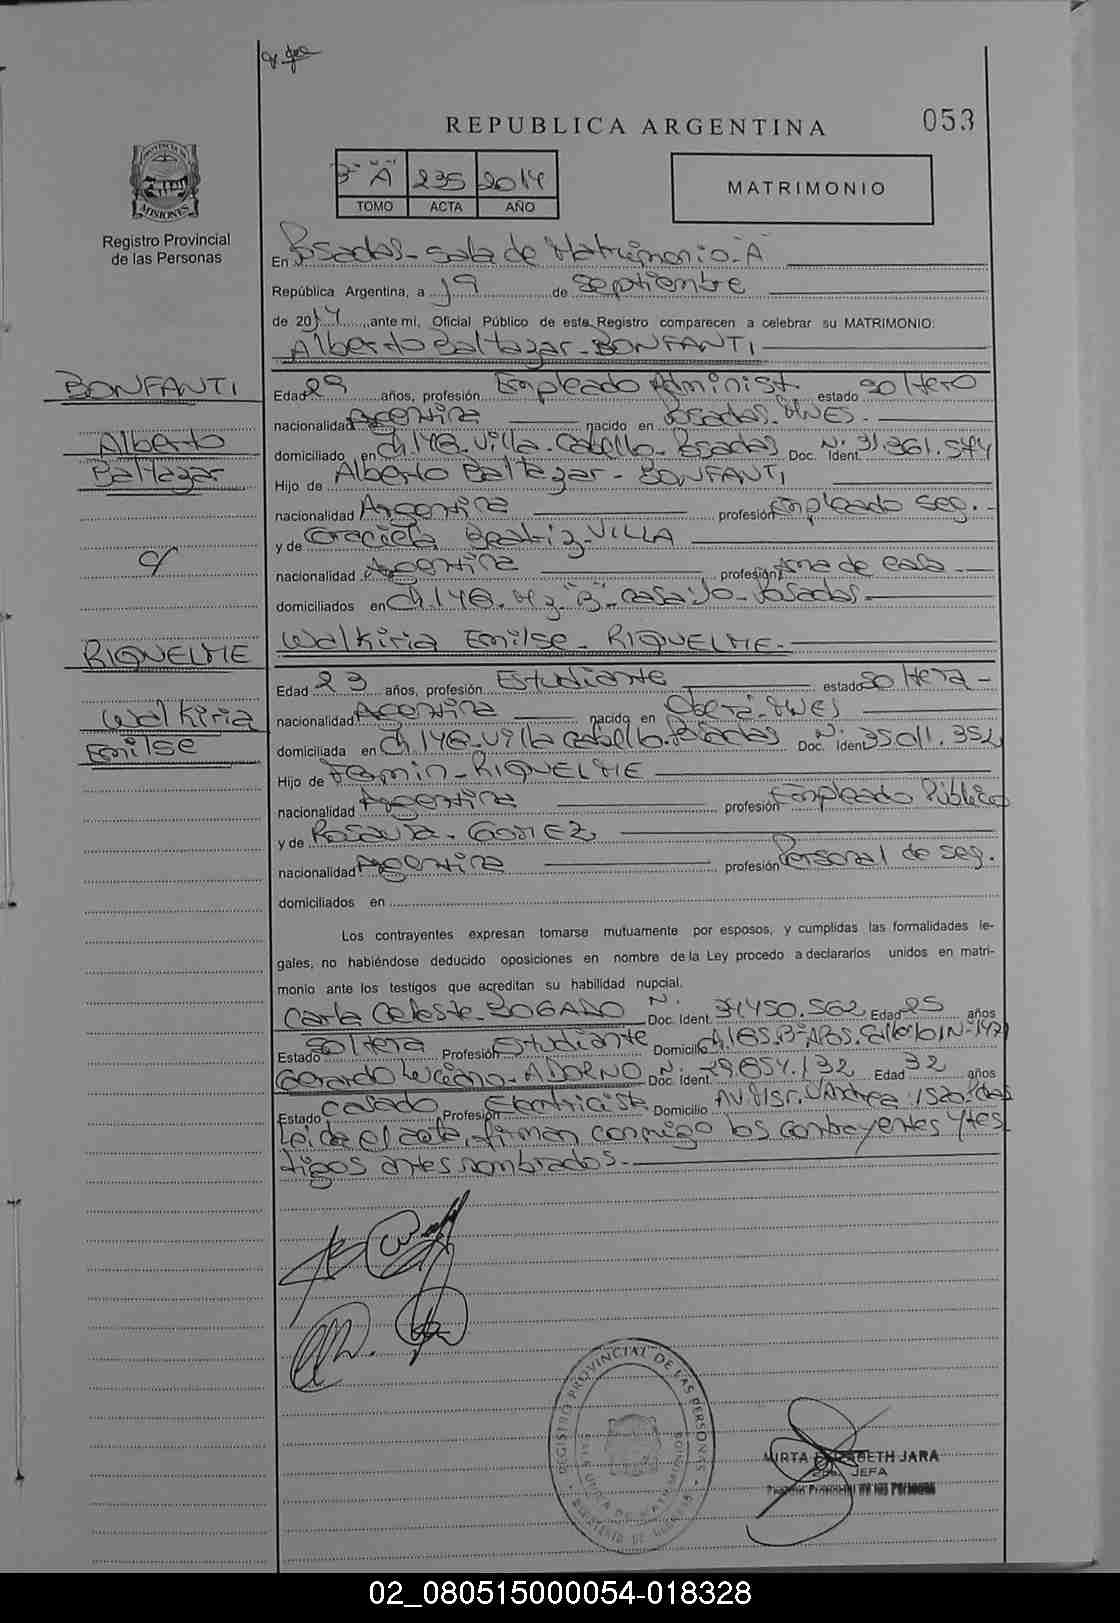 053
REPUBLICA ARGENTINA
3º "A" 235 2014
TOMO ACTA AÑO
MATRIMONIO
PROVINCIA DE
MISIONES
Registro Provincial
de las Personas
En Posadas - Sala de Matrimonio "A"
República Argentina, a 19 de Septiembre
de 2014 ante mi, Oficial Público de este Registro comparecen a celebrar su MATRIMONIO:
Alberto Baltazar - BONFANTI
BONFANTI
Alberto
Baltazar
c/
RIQUELME
Walkiria
Emilse
Edad 29 años, profesión Empleado Administ. estado Soltero
nacionalidad Argentina nacido en Posadas. Mnes -
domiciliado en Ch. 146. Villa Cabello. Posadas Doc. Ident. Nº 31.361.574
Hijo de Alberto Baltazar - BONFANTI
nacionalidad Argentina profesión Empleado Seg. -
y de Graciela Beatriz - VILLA
nacionalidad Argentina profesión Ama de casa
domiciliados en Ch. 146. Mz. "B". casa 10 - Posadas -
Walkiria Emilse - RIQUELME -
Edad 23 años, profesión Estudiante estado Soltera -
nacionalidad Argentina nacido en Oberá - Mnes
domiciliada en Ch. 146. Villa Cabello. Posadas Doc. Ident. Nº 35.011.352
Hijo de Fermin - RIQUELME
nacionalidad Argentina profesión Empleado Público
y de Rosaura - GOMEZ
nacionalidad Argentina profesión Personal de seg.
domiciliados en
Los contrayentes expresan tomarse mutuamente por esposos, y cumplidas las formalidades le-
gales, no habiéndose deducido oposiciones en nombre de la Ley procedo a declararlos unidos en matri-
monio ante los testigos que acreditan su habilidad nupcial.
Carla Celeste - BOGADO Doc. Ident. Nº 34.450.562 Edad 25 años
Estado Soltera Profesión Estudiante Domicilio Ch. 185. Bº A
Gerardo Luciano - ADORNO Doc. Ident. Nº 29.654.132 Edad 32 años
Estado Casado Profesión Electricista Domicilio Av. Msr. D'Andrea 1520. Pdas
Leída el acta, firman conmigo los contrayentes y tes
tigos antes nombrados -
REGISTRO PROVINCIAL DE LAS PERSONAS
MIRTA ELIZABETH JARA
JEFA
Registro Provincial de las Personas
02_080515000054-018328